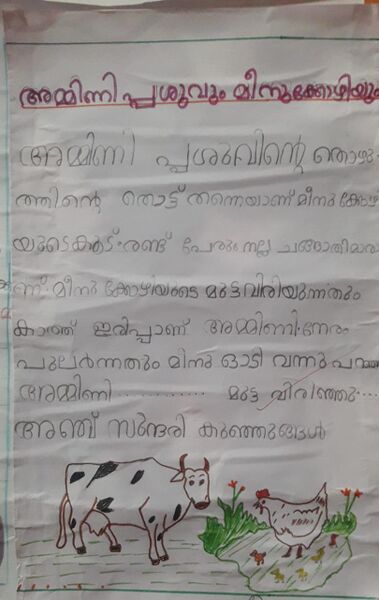 അമ്മിണി പ്പശുവും മീനുക്കോഴിയും
അമ്മിണി പ്പശുവിന്റെ തൊഴു
ത്തിന്റെ തൊട്ട് തന്നെയാണ് മീനു കോഴി
യുടെകൂട്. രണ്ട് പേരും നല്ല ചങ്ങാതിമാരാ
ണ്. മീനു കോഴിയുടെ മുട്ടവിരിയുന്നതും
കാത്ത് ഇരിപ്പാണ് അമ്മിണി. നേരം
പുലർന്നതും മിനു ഓടി വന്നു പറഞ്ഞു
അമ്മിണി ............... മുട്ട വിരിഞ്ഞു....
അഞ്ച് സുന്ദരി കുഞ്ഞുങ്ങൾ